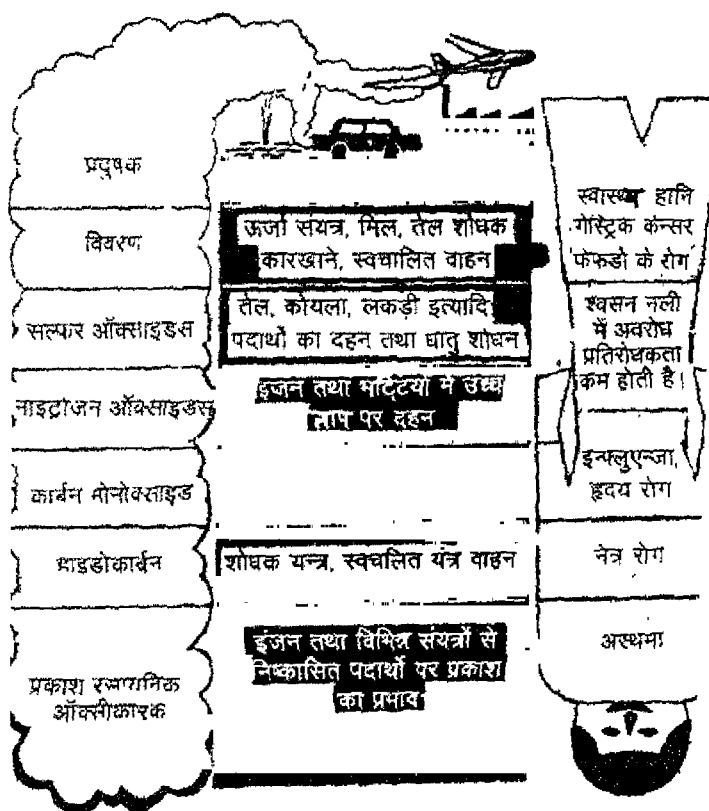 प्रदुषक
विवरण
सल्फर ऑक्साइडस
नाइट्रोजन ऑक्साइडस
कार्बन मोनोक्साइड
हाइडोकार्बन
प्रकाश रसायनिक
ऑक्सीकारक
ऊर्जा संयत्र, मिल, तेल शोधक
कारखाने, स्वचालित वाहन
तेल, कोयला, लकड़ी इत्यादि
पदार्थो का दहन तथा धातु शोधन
इंजन तथा भट्टियों में उच्च
ताप पर दहन
शोधक यन्त्र, स्वचलित यंत्र वाहन
इंजन तथा विभिन्न संयत्रों से
निष्कासित पदार्थो पर प्रकाश
का प्रभाव
स्वास्थ्य हानि
गेस्ट्रिक केन्सर
फेफडो के रोग
श्वसन नली
में अवरोध
प्रतिरोधकता
कम होती है।
इन्फ्लुएन्जा,
हृदय रोग
नेत्र रोग
अस्थमा